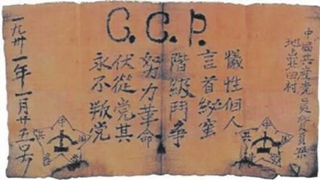 C.C.P.
中國共產党員
犧牲個人
言首泌蜜
階級鬥爭
努力革命
伏從党其
永不叛党
一九卅一年一月廿五日